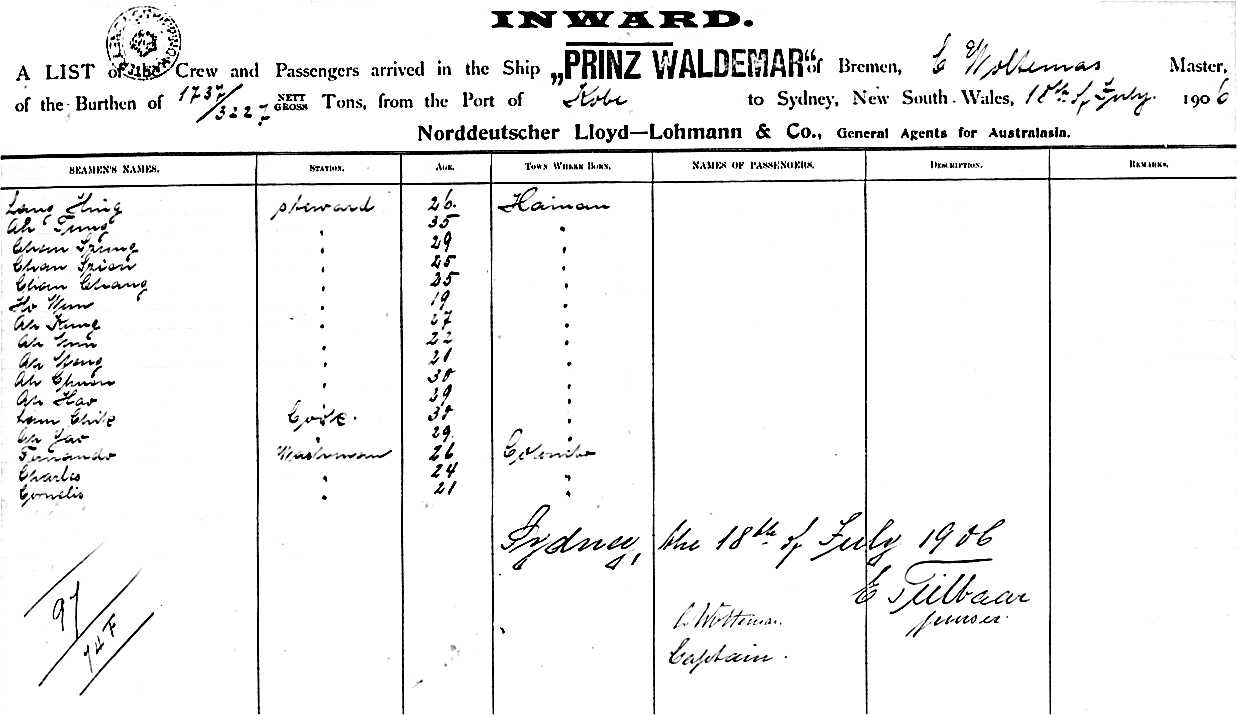 INWARD.
A LIST of the Crew and Passengers arrived in the Ship „PRINZ WALDEMAR“ of Bremen, C Woltemas Master,
of the Burthen of 1737/3227 NETT GROSS Tons, from the Port of Kobe to Sydney, New South Wales, 18th of July. 1906
Norddeutscher Lloyd—Lohmann & Co., General Agents for Australasia.
SEAMEN'S NAMES. STATION. AGE. TOWN WHERE BORN. NAMES OF PASSENGERS. DESCRIPTION. REMARKS.
Lang Hing steward 26. Hainan
Ah Tung " 35 "
Chan " 29 "
Chan " 25 "
Chan Chang " 25 "
Ho Wun " 19 "
Ah Kung " 27 "
Ah " 22 "
Ah " 21 "
Ah Chuan " 30 "
Ah Hao " 29 "
Lam Chik Cook. 30 "
Yao " 29. "
Fernando Washman 26 Colombo
Charles " 24 "
Cornelis " 21 "
Sydney, the 18th of July 1906
E
purser.
C. Woltemas.
Captain.
97/
74 F